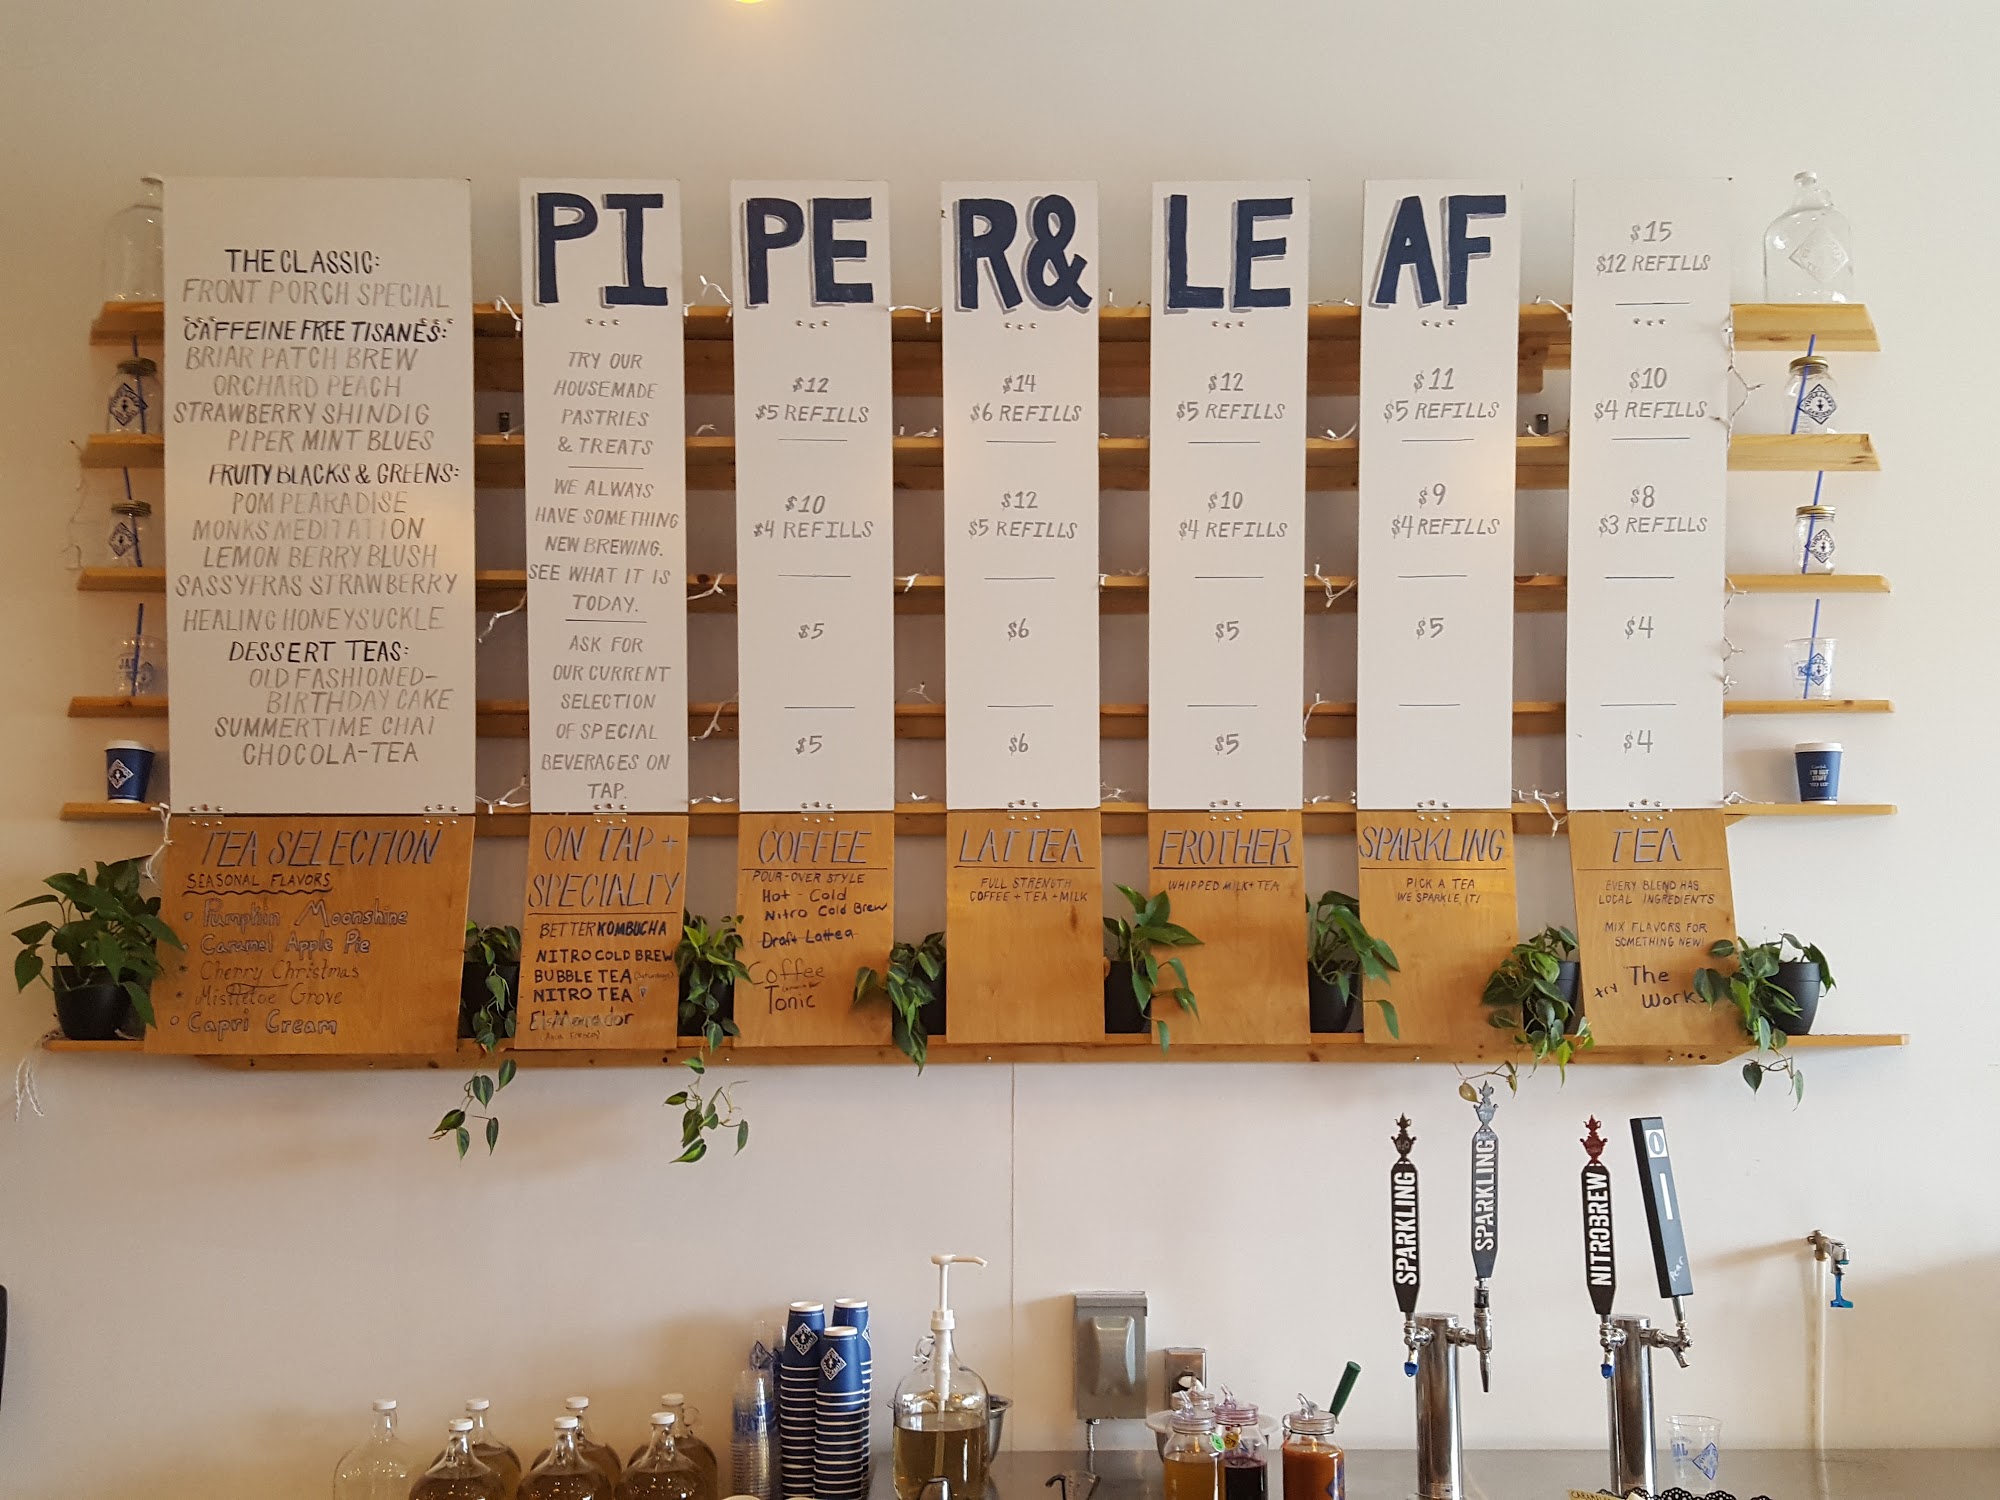 PIPER & LEAF
THE CLASSIC:
FRONT PORCH SPECIAL
CAFFEINE FREE TISANES:
BRIAR PATCH BREW
ORCHARD PEACH
STRAWBERRY SHINDIG
PIPER MINT BLUES
FRUITY BLACKS & GREENS:
POM PEARADISE
MONKS MEDITATION
LEMON BERRY BLUSH
SASSYFRAS STRAWBERRY
HEALING HONEYSUCKLE
DESSERT TEAS:
OLD FASHIONED-
BIRTHDAY CAKE
SUMMERTIME CHAI
CHOCOLA-TEA
TEA SELECTION
SEASONAL FLAVORS
• Pumpkin Moonshine
• Caramel Apple Pie
• Cherry Christmas
• Mistletoe Grove
• Capri Cream
TRY OUR
HOUSEMADE
PASTRIES
& TREATS
WE ALWAYS
HAVE SOMETHING
NEW BREWING.
SEE WHAT IT IS
TODAY.
ASK FOR
OUR CURRENT
SELECTION
OF SPECIAL
BEVERAGES ON
TAP.
ON TAP +
SPECIALTY
BETTER KOMBUCHA
NITRO COLD BREW
BUBBLE TEA
NITRO TEA
$12
$5 REFILLS
$10
$4 REFILLS
$5
$5
COFFEE
POUR-OVER STYLE
Hot - Cold
Nitro Cold Brew
Draft Lattea
Coffee
Tonic
$14
$6 REFILLS
$12
$5 REFILLS
$6
$6
LATTEA
FULL STRENGTH
COFFEE + TEA + MILK
$12
$5 REFILLS
$10
$4 REFILLS
$5
$5
FROTHER
WHIPPED MILK + TEA
$11
$5 REFILLS
$9
$4 REFILLS
$5
SPARKLING
PICK A TEA
WE SPARKLE IT!
$15
$12 REFILLS
$10
$4 REFILLS
$8
$3 REFILLS
$4
$4
TEA
EVERY BLEND HAS
LOCAL INGREDIENTS
MIX FLAVORS FOR
SOMETHING NEW!
try The
Works
SPARKLING
SPARKLING
NITROBREW